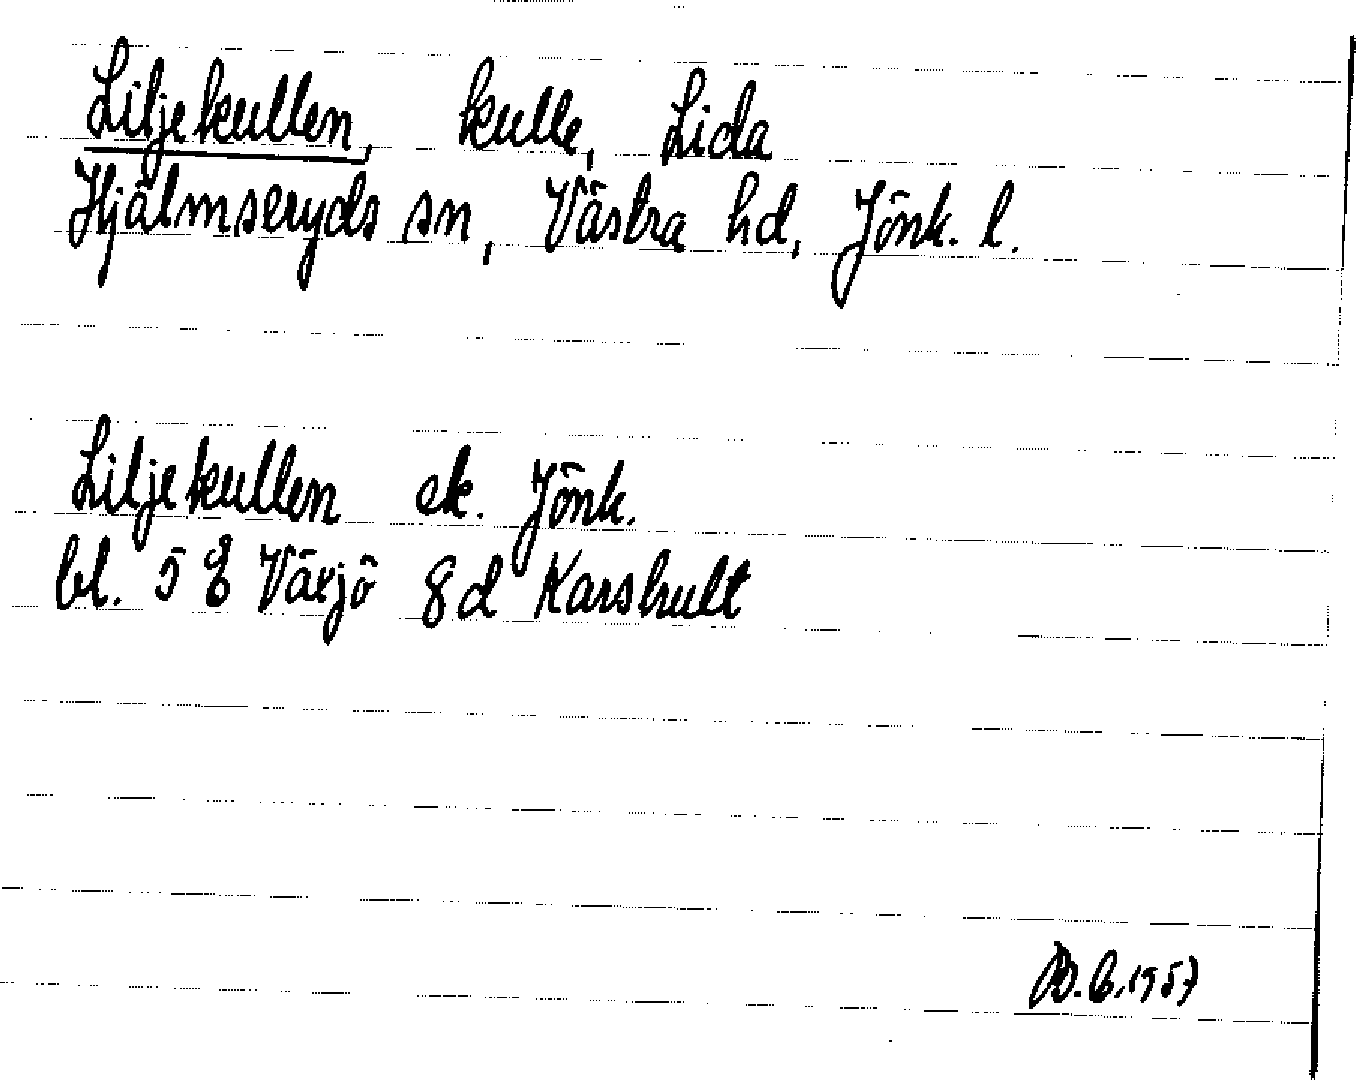 Liljekullen, kulle, Lida
Hjälmseryds sn, Västra hd, Jönk. l.
Liljekullen ek. Jönk.
bl. 5 E Växjö 8 d Karshult
B.C. 1957